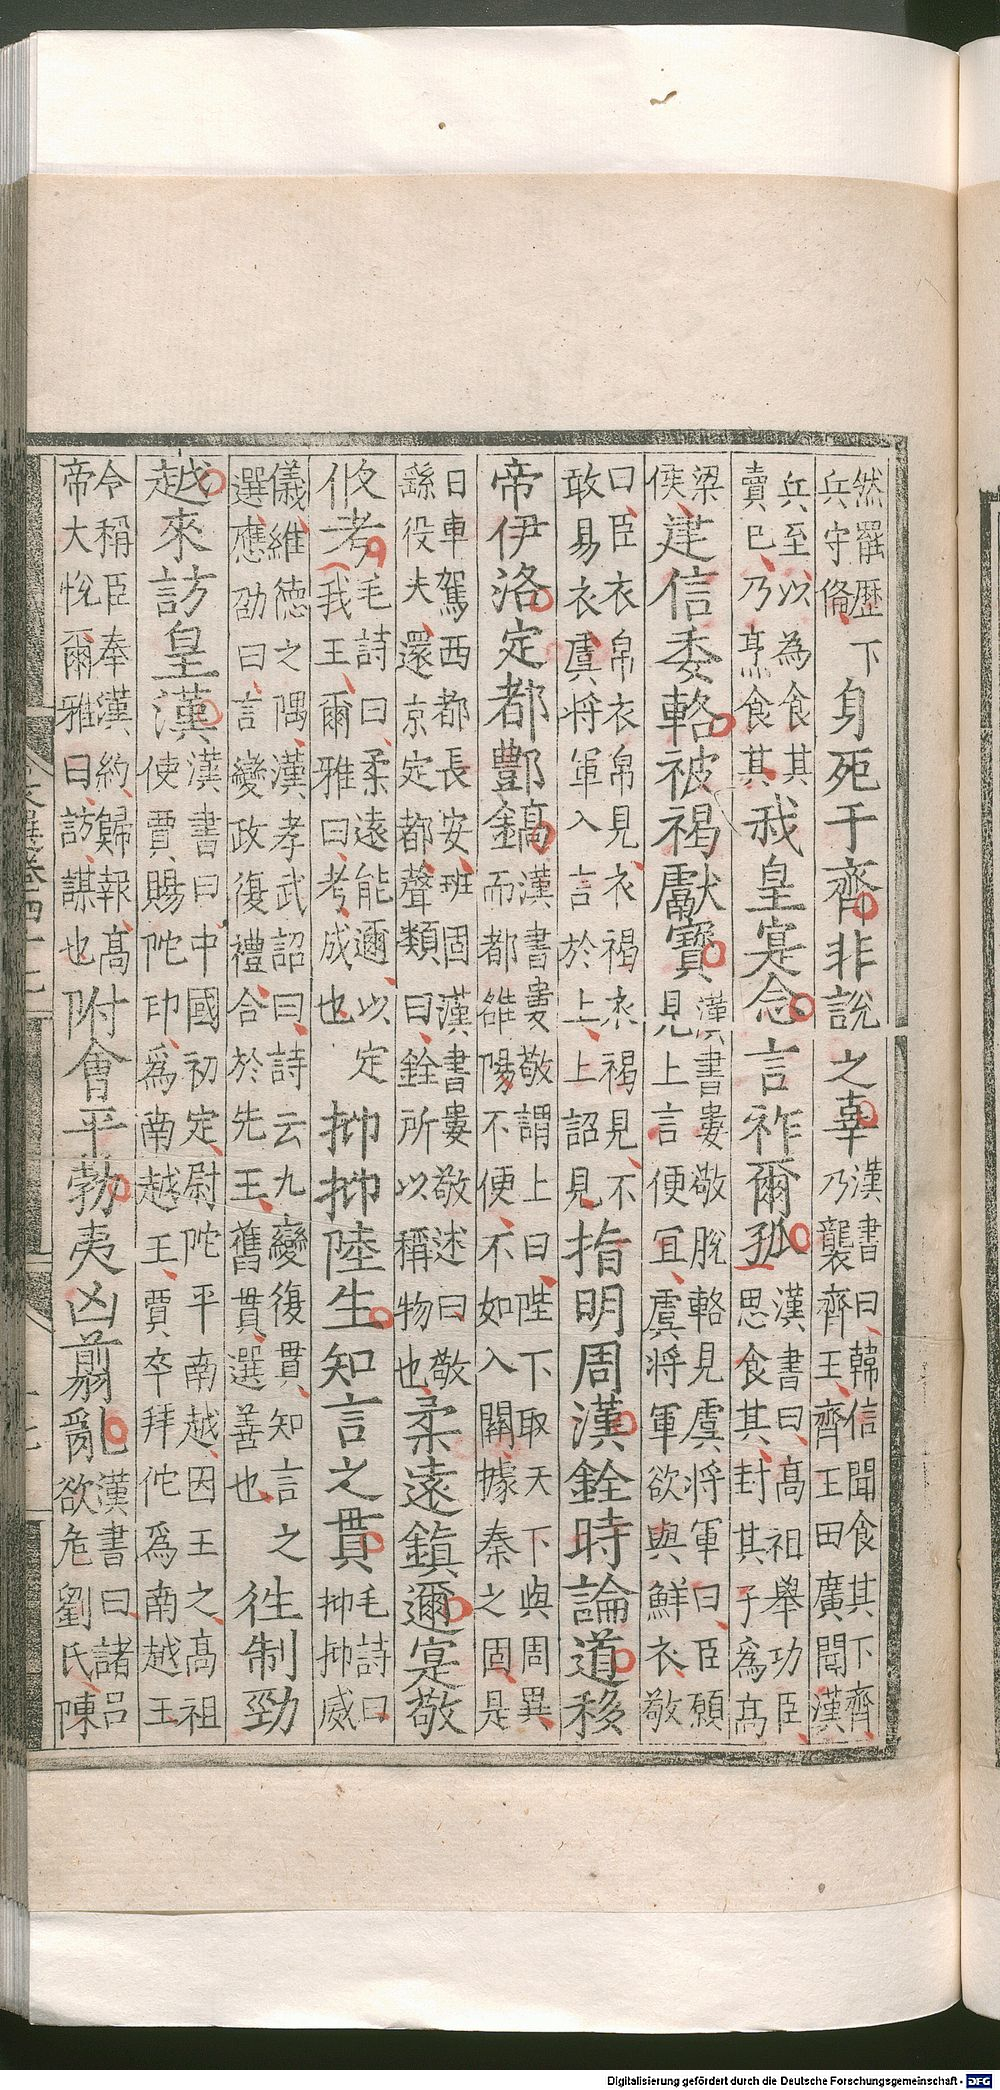 然罷歷下
兵守備
身死于齊非說之辜
漢書曰韓信聞食其下齊
乃襲齊王齊王田廣聞漢
兵至以為食其
賣已乃烹食其
我皇寔念言祚爾孤
漢書曰高祖舉功臣
思食其封其子為高
梁
侯
建信委輅被褐獻寶
漢書婁敬脫輓輅見虞將軍曰臣願
見上言便宜虞將軍欲與鮮衣敬
曰臣衣帛衣帛見衣褐衣褐見不
敢易衣虞將軍入言於上上詔見
指明周漢銓時論道移
帝伊洛定都酆鎬
漢書婁敬謂上曰陛下取天下與周異
而都雒陽不便不如入關據秦之固是
日車駕西都長安班固漢書婁敬述曰敬
繇役夫還京定都聲類曰銓所以稱物也
柔遠鎮邇寔敬
攸考
毛詩曰柔遠能邇以定
我王爾雅曰考成也
抑抑陸生知言之貫
毛詩曰
抑抑威
儀維德之隅漢孝武詔曰詩云九變復貫知言之
選應劭曰言變政復禮合於先王舊貫選善也
往制勁
越來訪皇漢
漢書曰中國初定尉陀平南越因王之高祖
使賈賜陀印為南越王賈卒拜佗為南越王
令稱臣奉漢約歸報高
帝大悅爾雅曰訪謀也
附會平勃夷凶翦亂
漢書曰諸呂
欲危劉氏陳
文選卷四十七
Digitalisierung gefördert durch die Deutsche Forschungsgemeinschaft - DFG